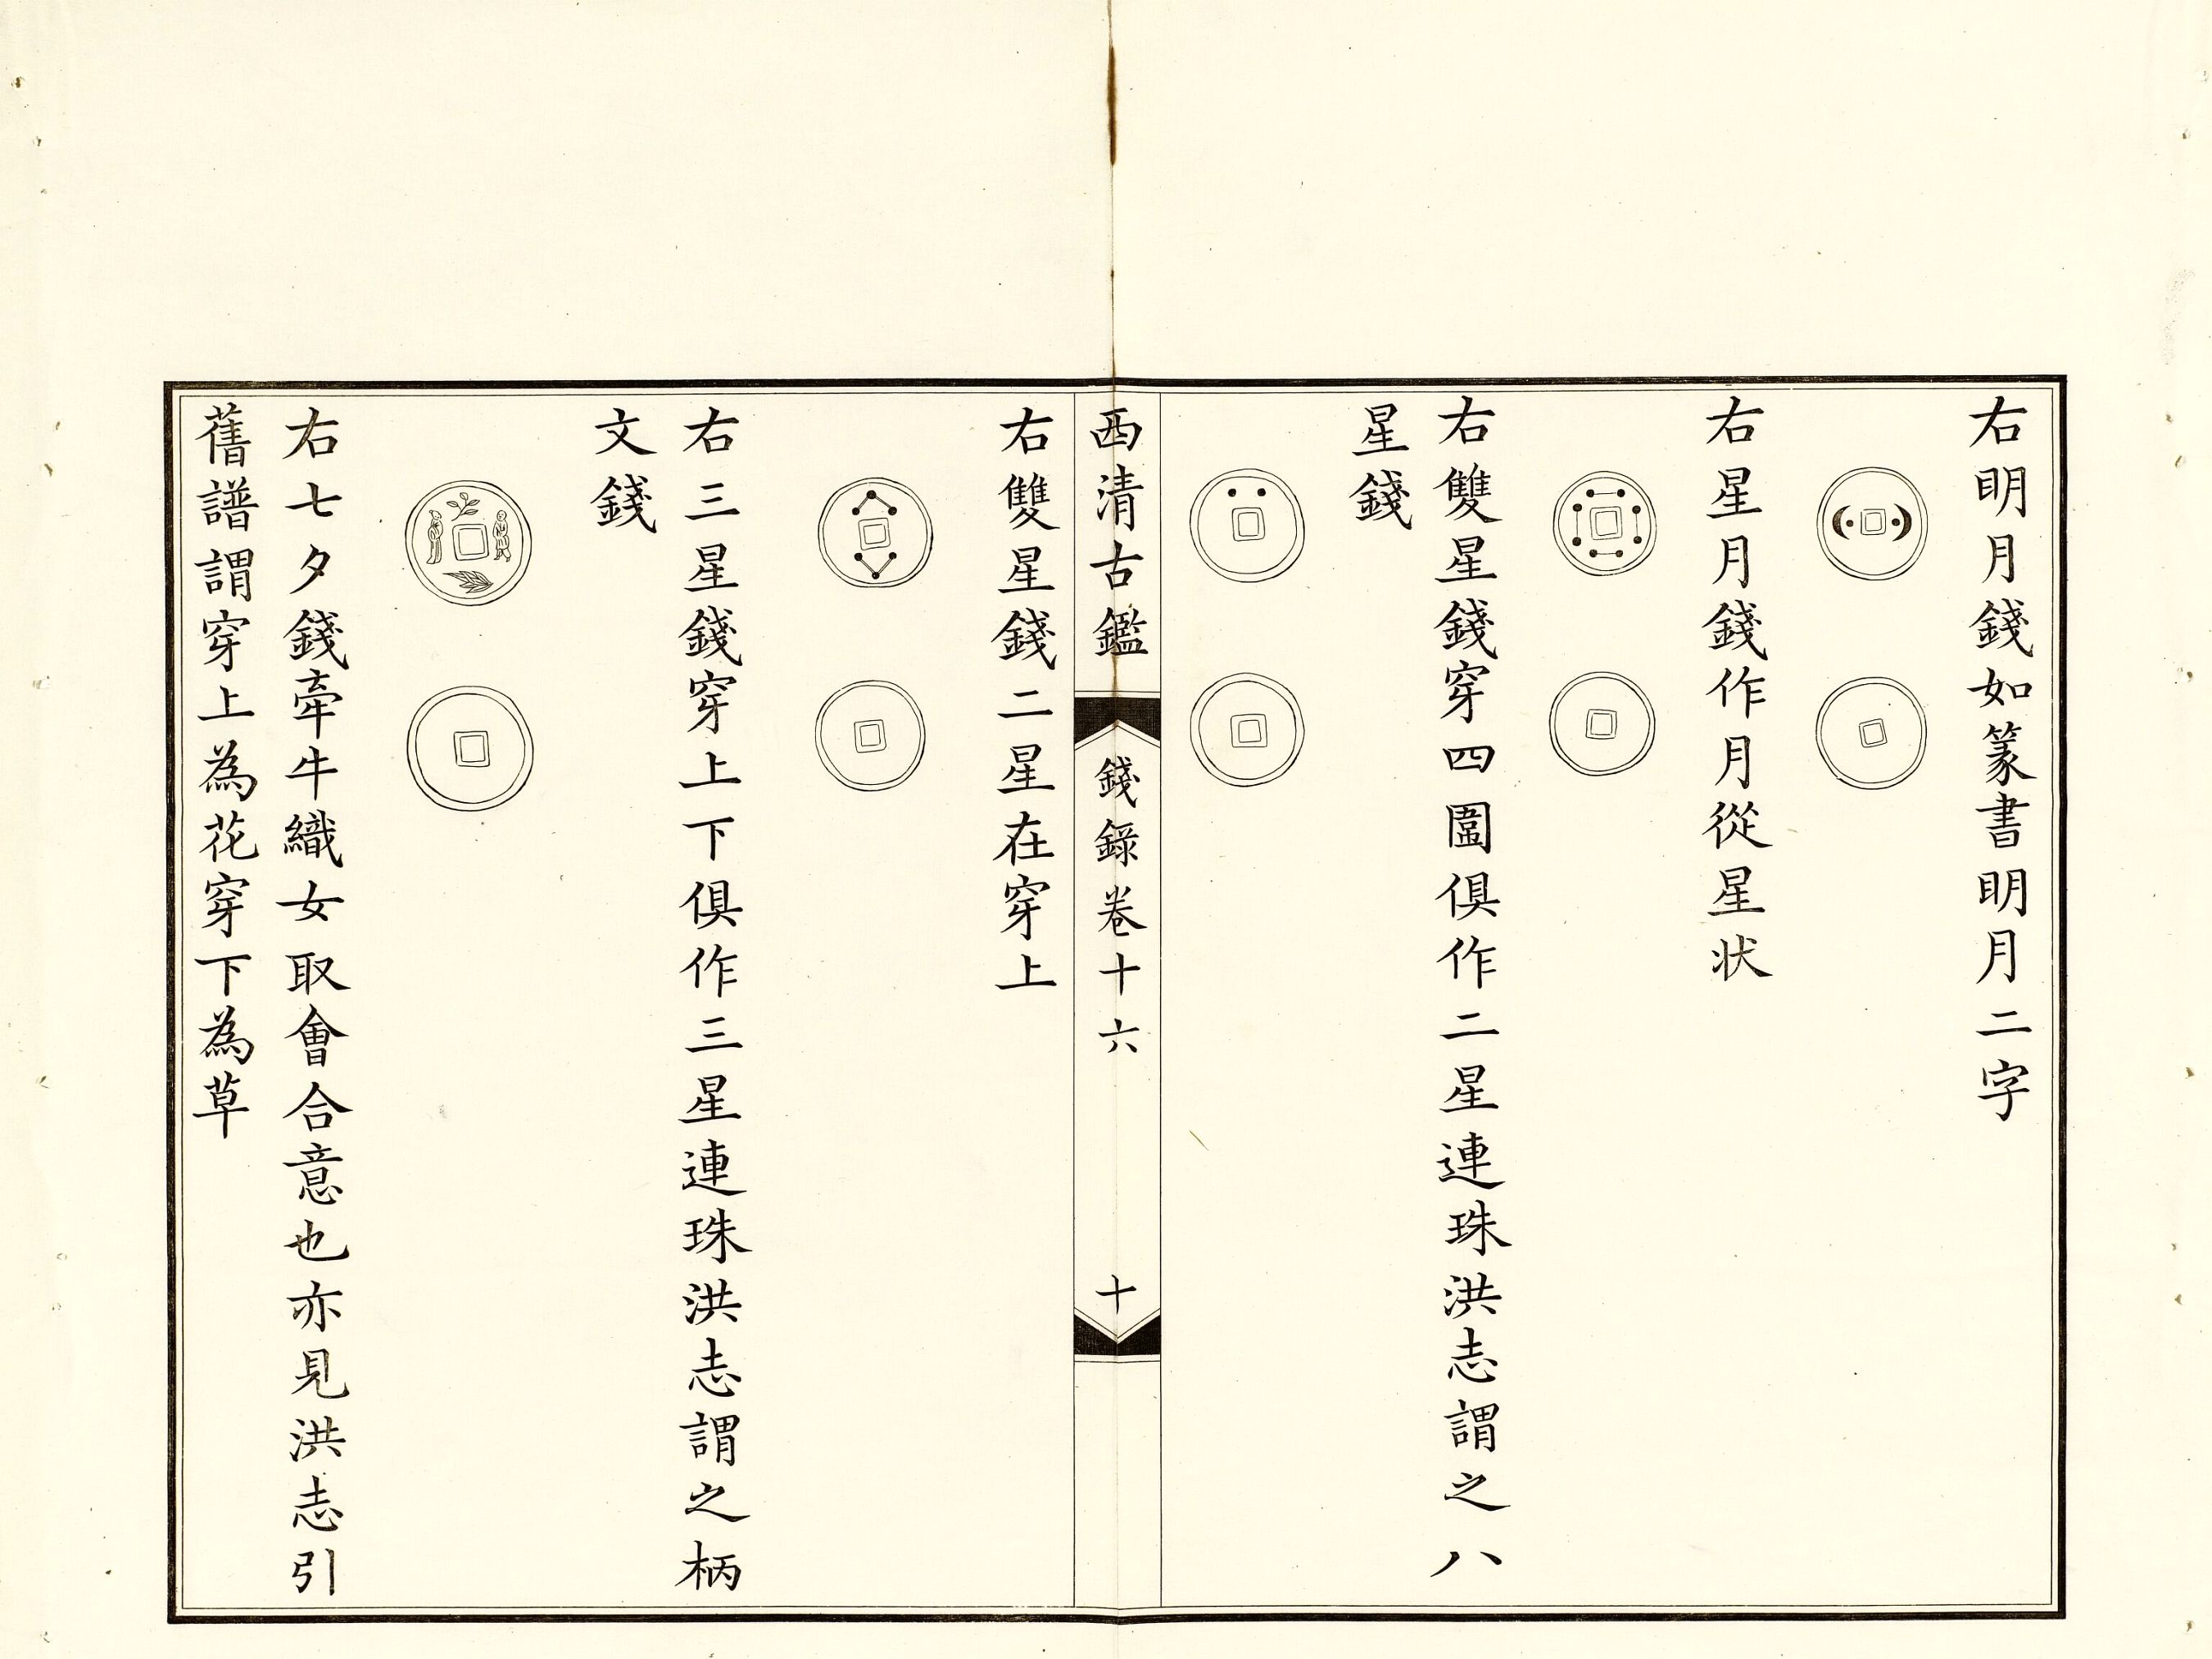 右明月錢如篆書明月二字
右星月錢作月從星状
右雙星錢穿四圍俱作二星連珠洪志謂之八
星錢
西清古鑑
錢錄卷十六
十
右雙星錢二星在穿上
右三星錢穿上下俱作三星連珠洪志謂之柄
文錢
右七夕錢牽牛織女取會合意也亦見洪志引
舊譜謂穿上為花穿下為草